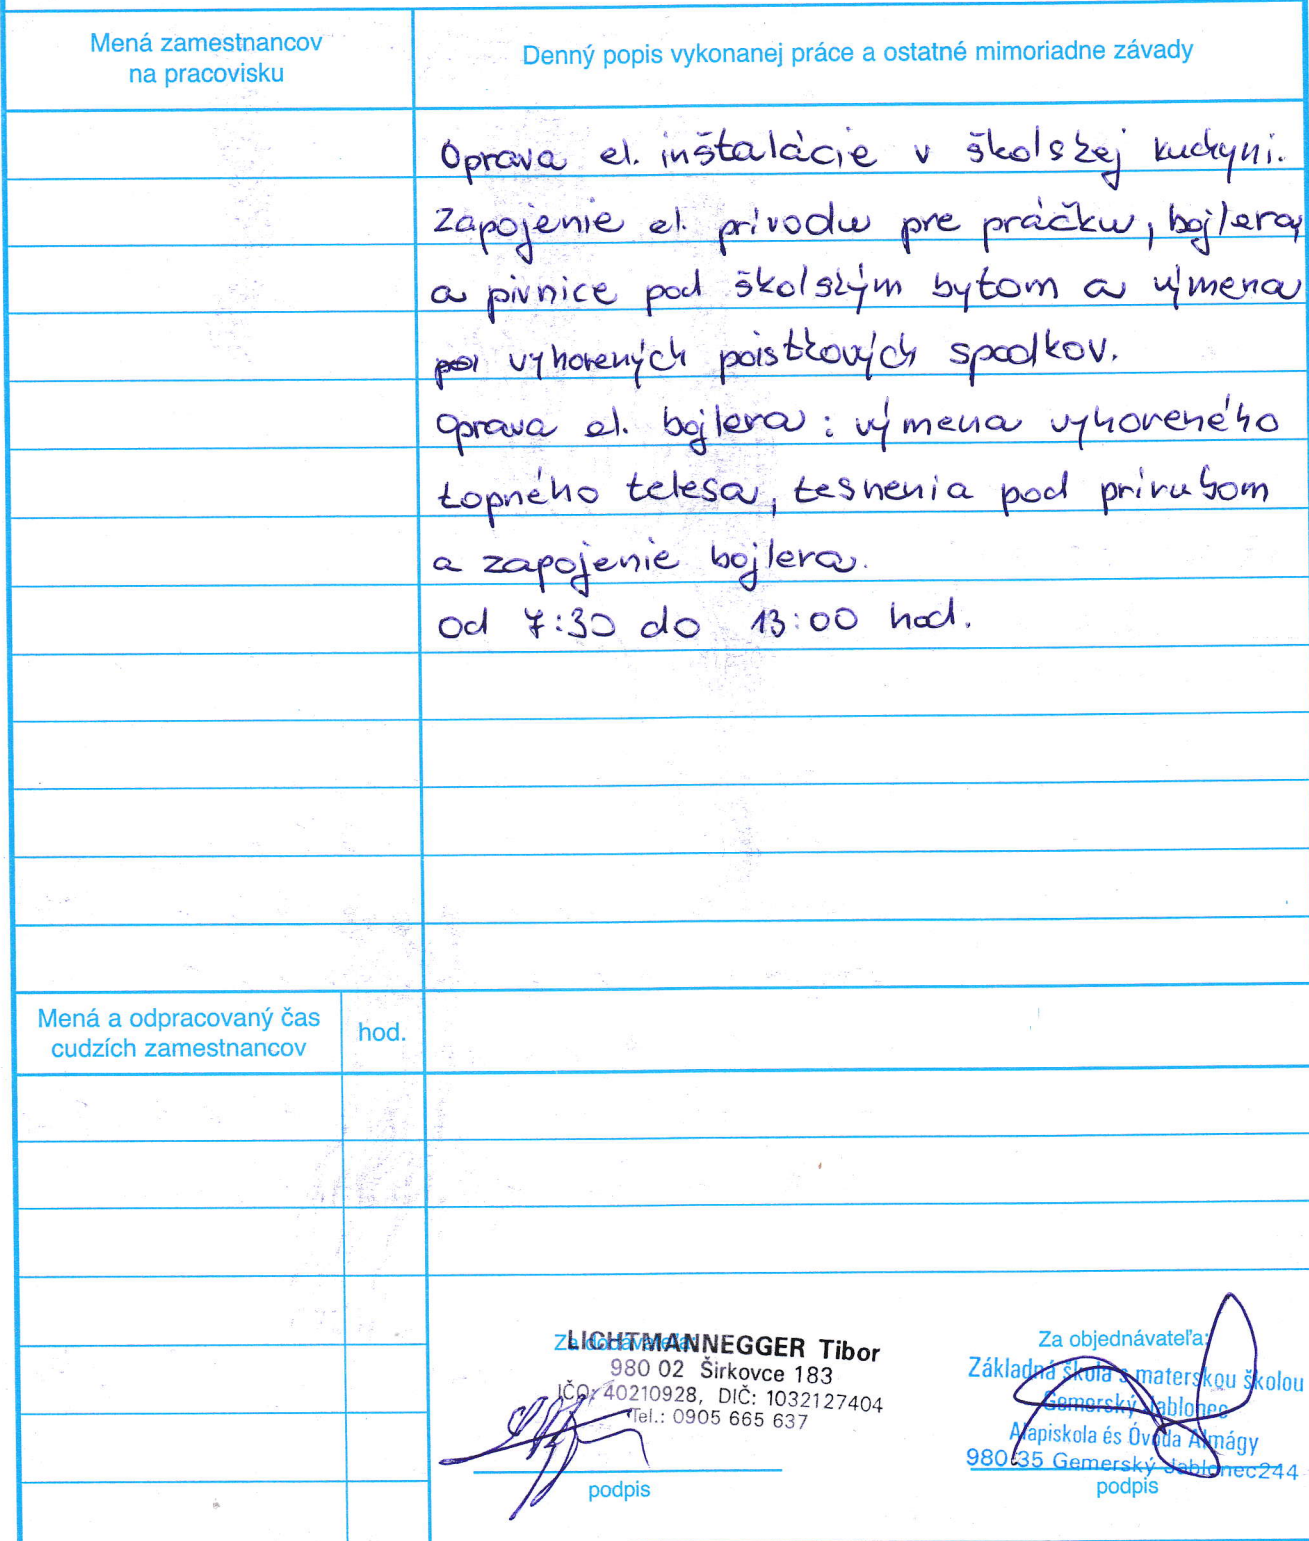 Mená zamestnancov
na pracovisku
Denný popis vykonanej práce a ostatné mimoriadne závady
Oprava el. inštalácie v školskej kuchyni.
Zapojenie el. prívodu pre práčku, bojlera,
a pivnice pod školským bytom a výmena
vyhorených poistkových spodkov.
Oprava el. bojlera: výmena vyhoreného
topného telesa, tesnenia pod prírubom
a zapojenie bojlera.
od 7:30 do 13:00 hod.
Mená a odpracovaný čas
cudzích zamestnancov
hod.
Za dodávateľa:
LICHTMANNEGGER Tibor
980 02 Širkovce 183
IČO: 40210928, DIČ: 1032127404
Tel.: 0905 665 637
podpis
Za objednávateľa:
Základná škola s materskou školou
Gemerský Jablonec
Alapiskola és Óvoda Almágy
980 35 Gemerský Jablonec 244
podpis